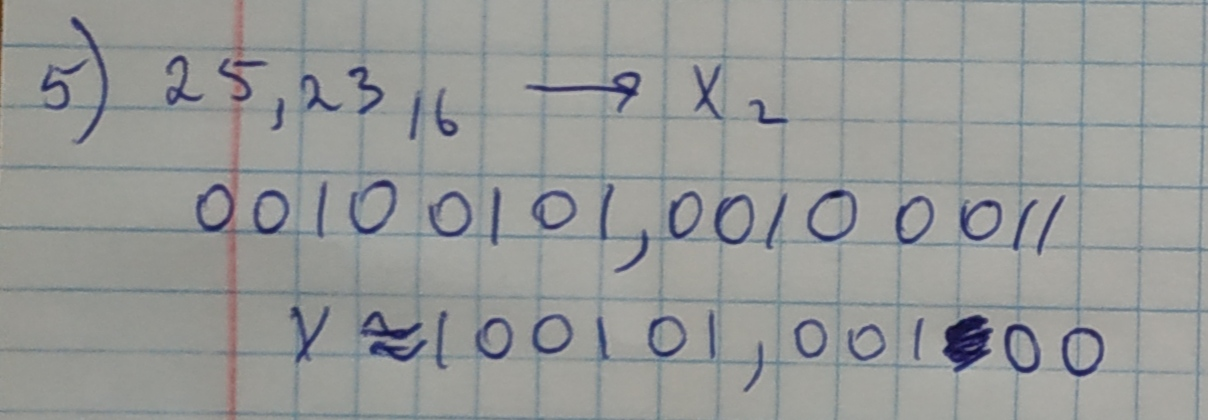 5) 25,23₁₆ → X₂
00100101,00100011
X≈100101,00100